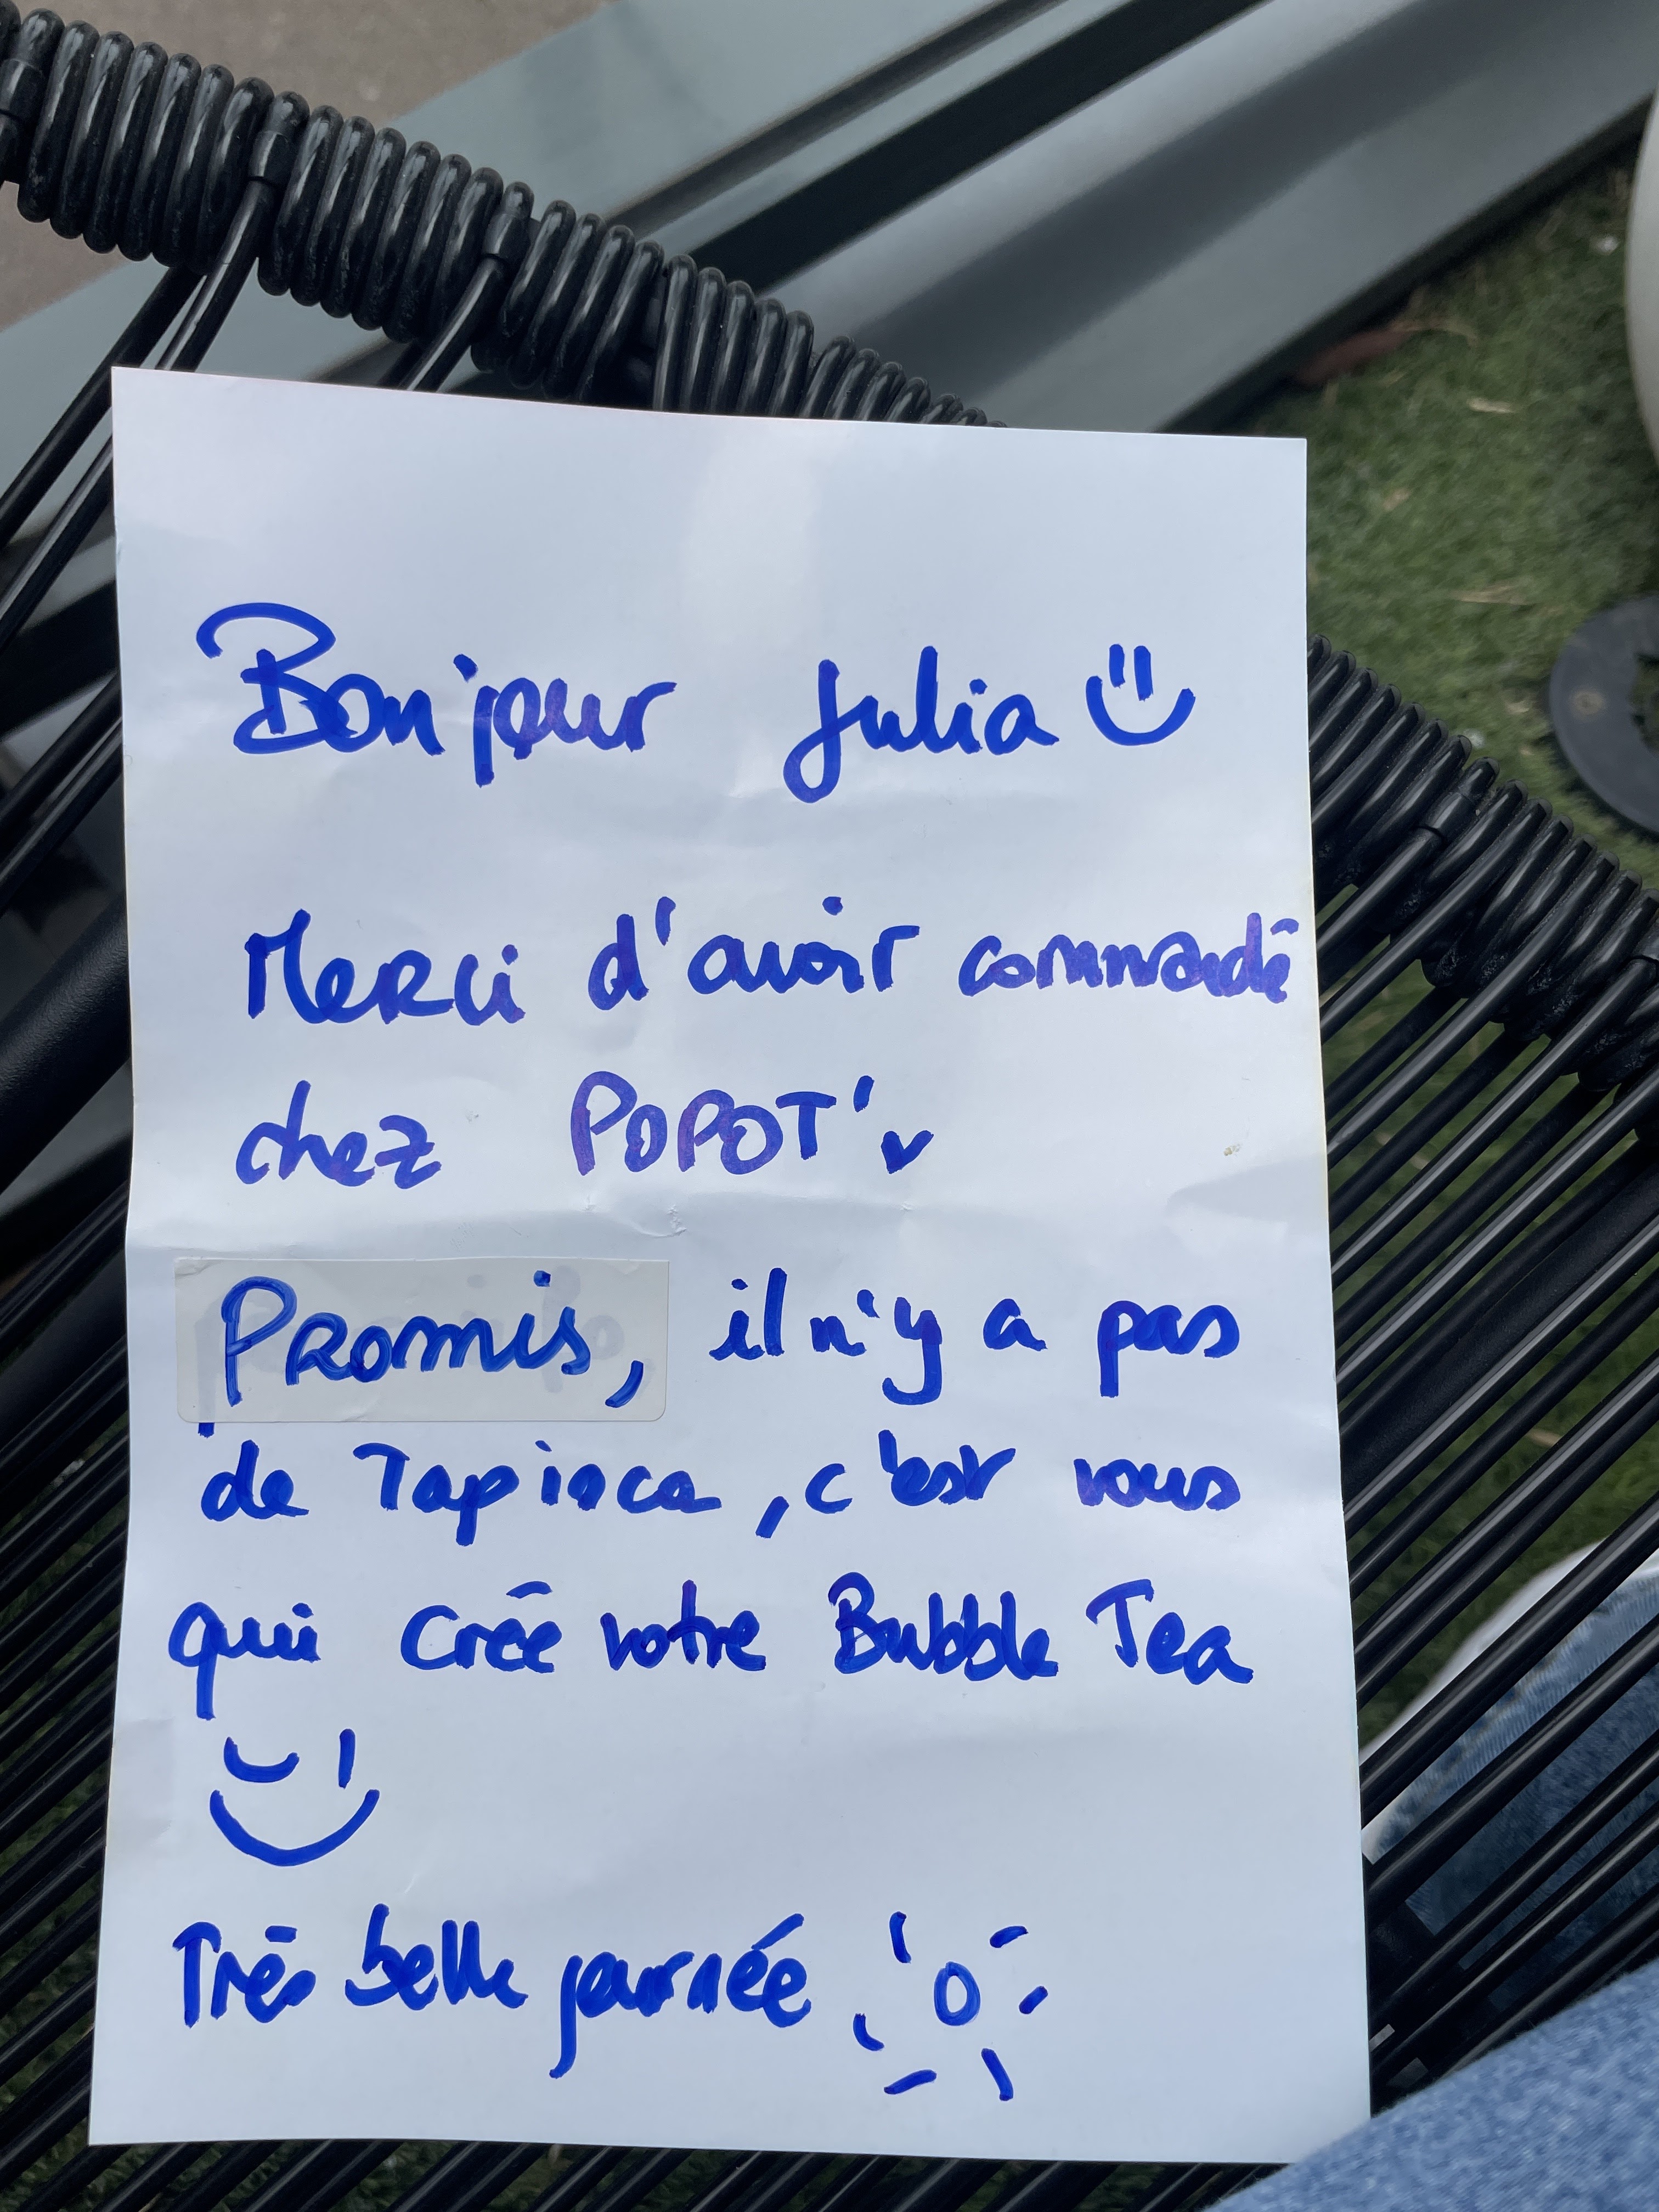 Bonjour Julia
Merci d'avoir commandé
chez POPOT'
Promis, il n'y a pas
de Tapioca, c'est vous
qui créé votre Bubble Tea
Très belle journée